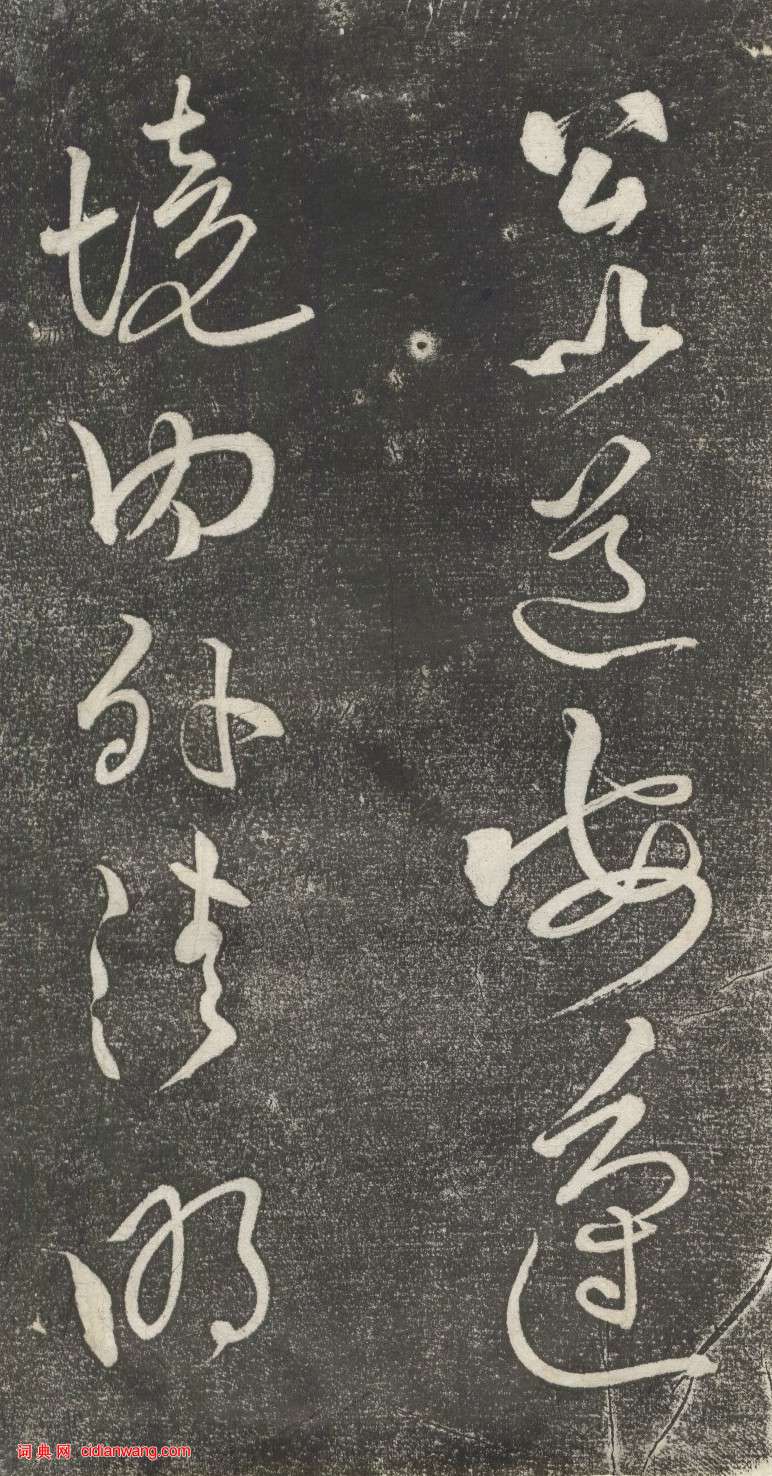 公以道安邊
境內外清明
词典网 cidianwang.com